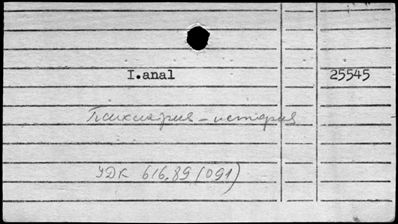 I.anal 25545
Психиатрия – история
УДК 616.89 (091)